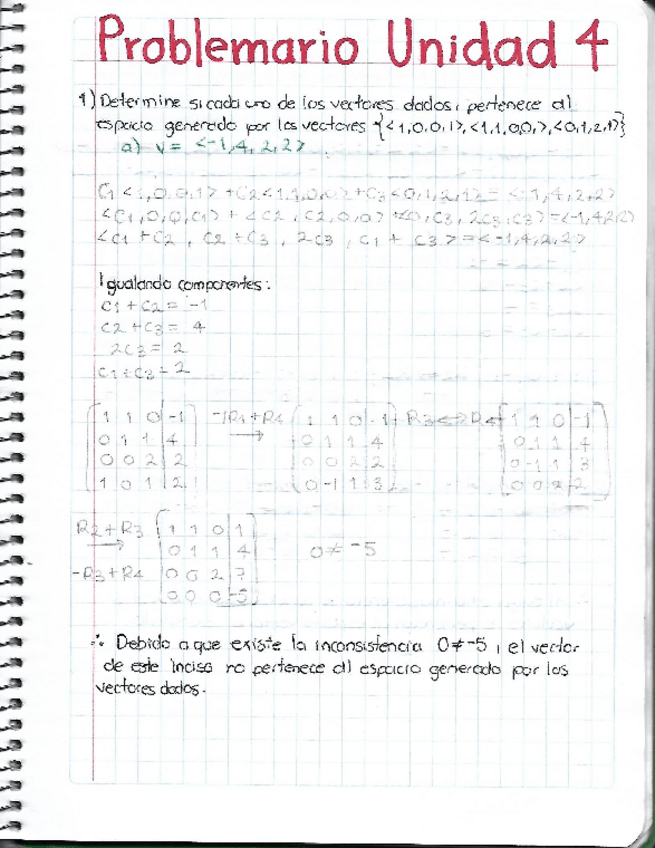 Problemario Unidad 4
1) Determine si cada uno de los vectores dados, pertenece al
espacio generado por los vectores {<1,0,0,1>, <1,1,0,0,>, <0,1,2,1>}
a) v = <-1,4,2,2>
C1 <1,0,0,1> + C2 <1,1,0,0> + C3 <0,1,2,1> = <-1,4,2,2>
<C1,0,0,C1> + <C2, C2,0,0> + <0,C3, 2C3,C3> = <-1,4,2,2>
<C1 + C2, C2 + C3, 2C3, C1 + C3> = <-1,4,2,2>
Igualando componentes:
C1 + C2 = -1
C2 + C3 = 4
2C3 = 2
C1 + C3 = 2
1 1 0 | -1 -1R1+R4 1 1 0 | -1 R3<->R4 1 1 0 | -1
0 1 1 | 4 → 0 1 1 | 4 0 1 1 | 4
0 0 2 | 2 0 0 2 | 2 0 -1 1 | 3
1 0 1 | 2 0 -1 1 | 3 0 0 2 | 2
R2+R3 → 1 1 0 | 1
0 1 1 | 4 0 ≠ -5
-R3+R4 0 0 2 | 7
0 0 0 | -5
∴ Debido a que existe la inconsistencia 0 ≠ -5, el vector
de este inciso no pertenece al espacio generado por los
vectores dados.